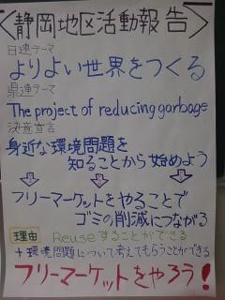 <静岡地区活動報告>
日連テーマ
よりよい世界をつくる
県連テーマ
The project of reducing garbage
決意宣言
身近な環境問題を
知ることから始めよう
フリーマーケットをやることで
ゴミの削減につながる
理由 Reuseすることができる
+環境問題について考えてもらうことができる
フリーマーケットをやろう!